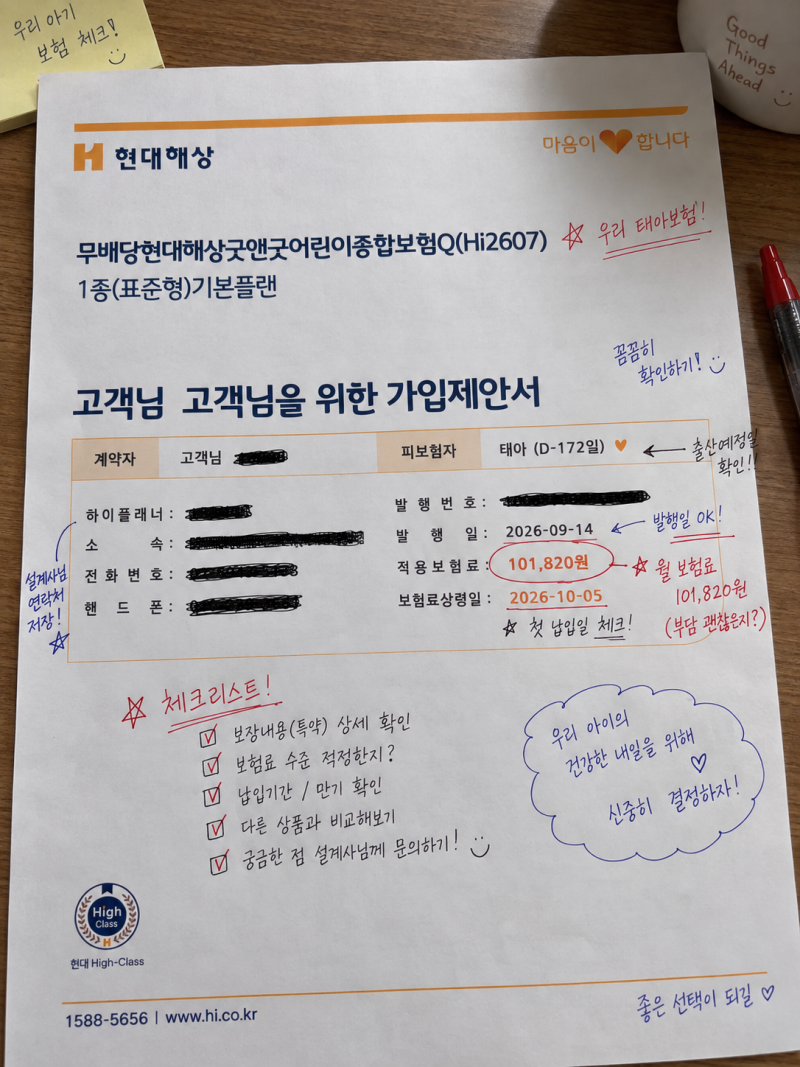 우리 아기
보험 체크!
Good
Things
Ahead
현대해상
마음이 합니다
무배당현대해상굿앤굿어린이종합보험Q(Hi2607)
우리 태아보험!
1종(표준형)기본플랜
꼼꼼히
확인하기!
고객님 고객님을 위한 가입제안서
계약자 고객님 피보험자 태아 (D-172일)
출산예정일
확인!!
하이플래너 :
소 속 :
전화번호 :
핸드폰 :
설계사님
연락처
저장!
발행번호 :
발행일 : 2026-09-14
발행일 OK!
적용보험료 : 101,820원
월 보험료
101,820원
(부담 괜찮은지?)
보험료상령일 : 2026-10-05
첫 납입일 체크!
체크리스트!
보장내용(특약) 상세 확인
보험료 수준 적정한지?
납입기간 / 만기 확인
다른 상품과 비교해보기
궁금한 점 설계사님께 문의하기!
우리 아이의
건강한 내일을 위해
신중히 결정하자!
High
Class
현대 High-Class
1588-5656 | www.hi.co.kr
좋은 선택이 되길